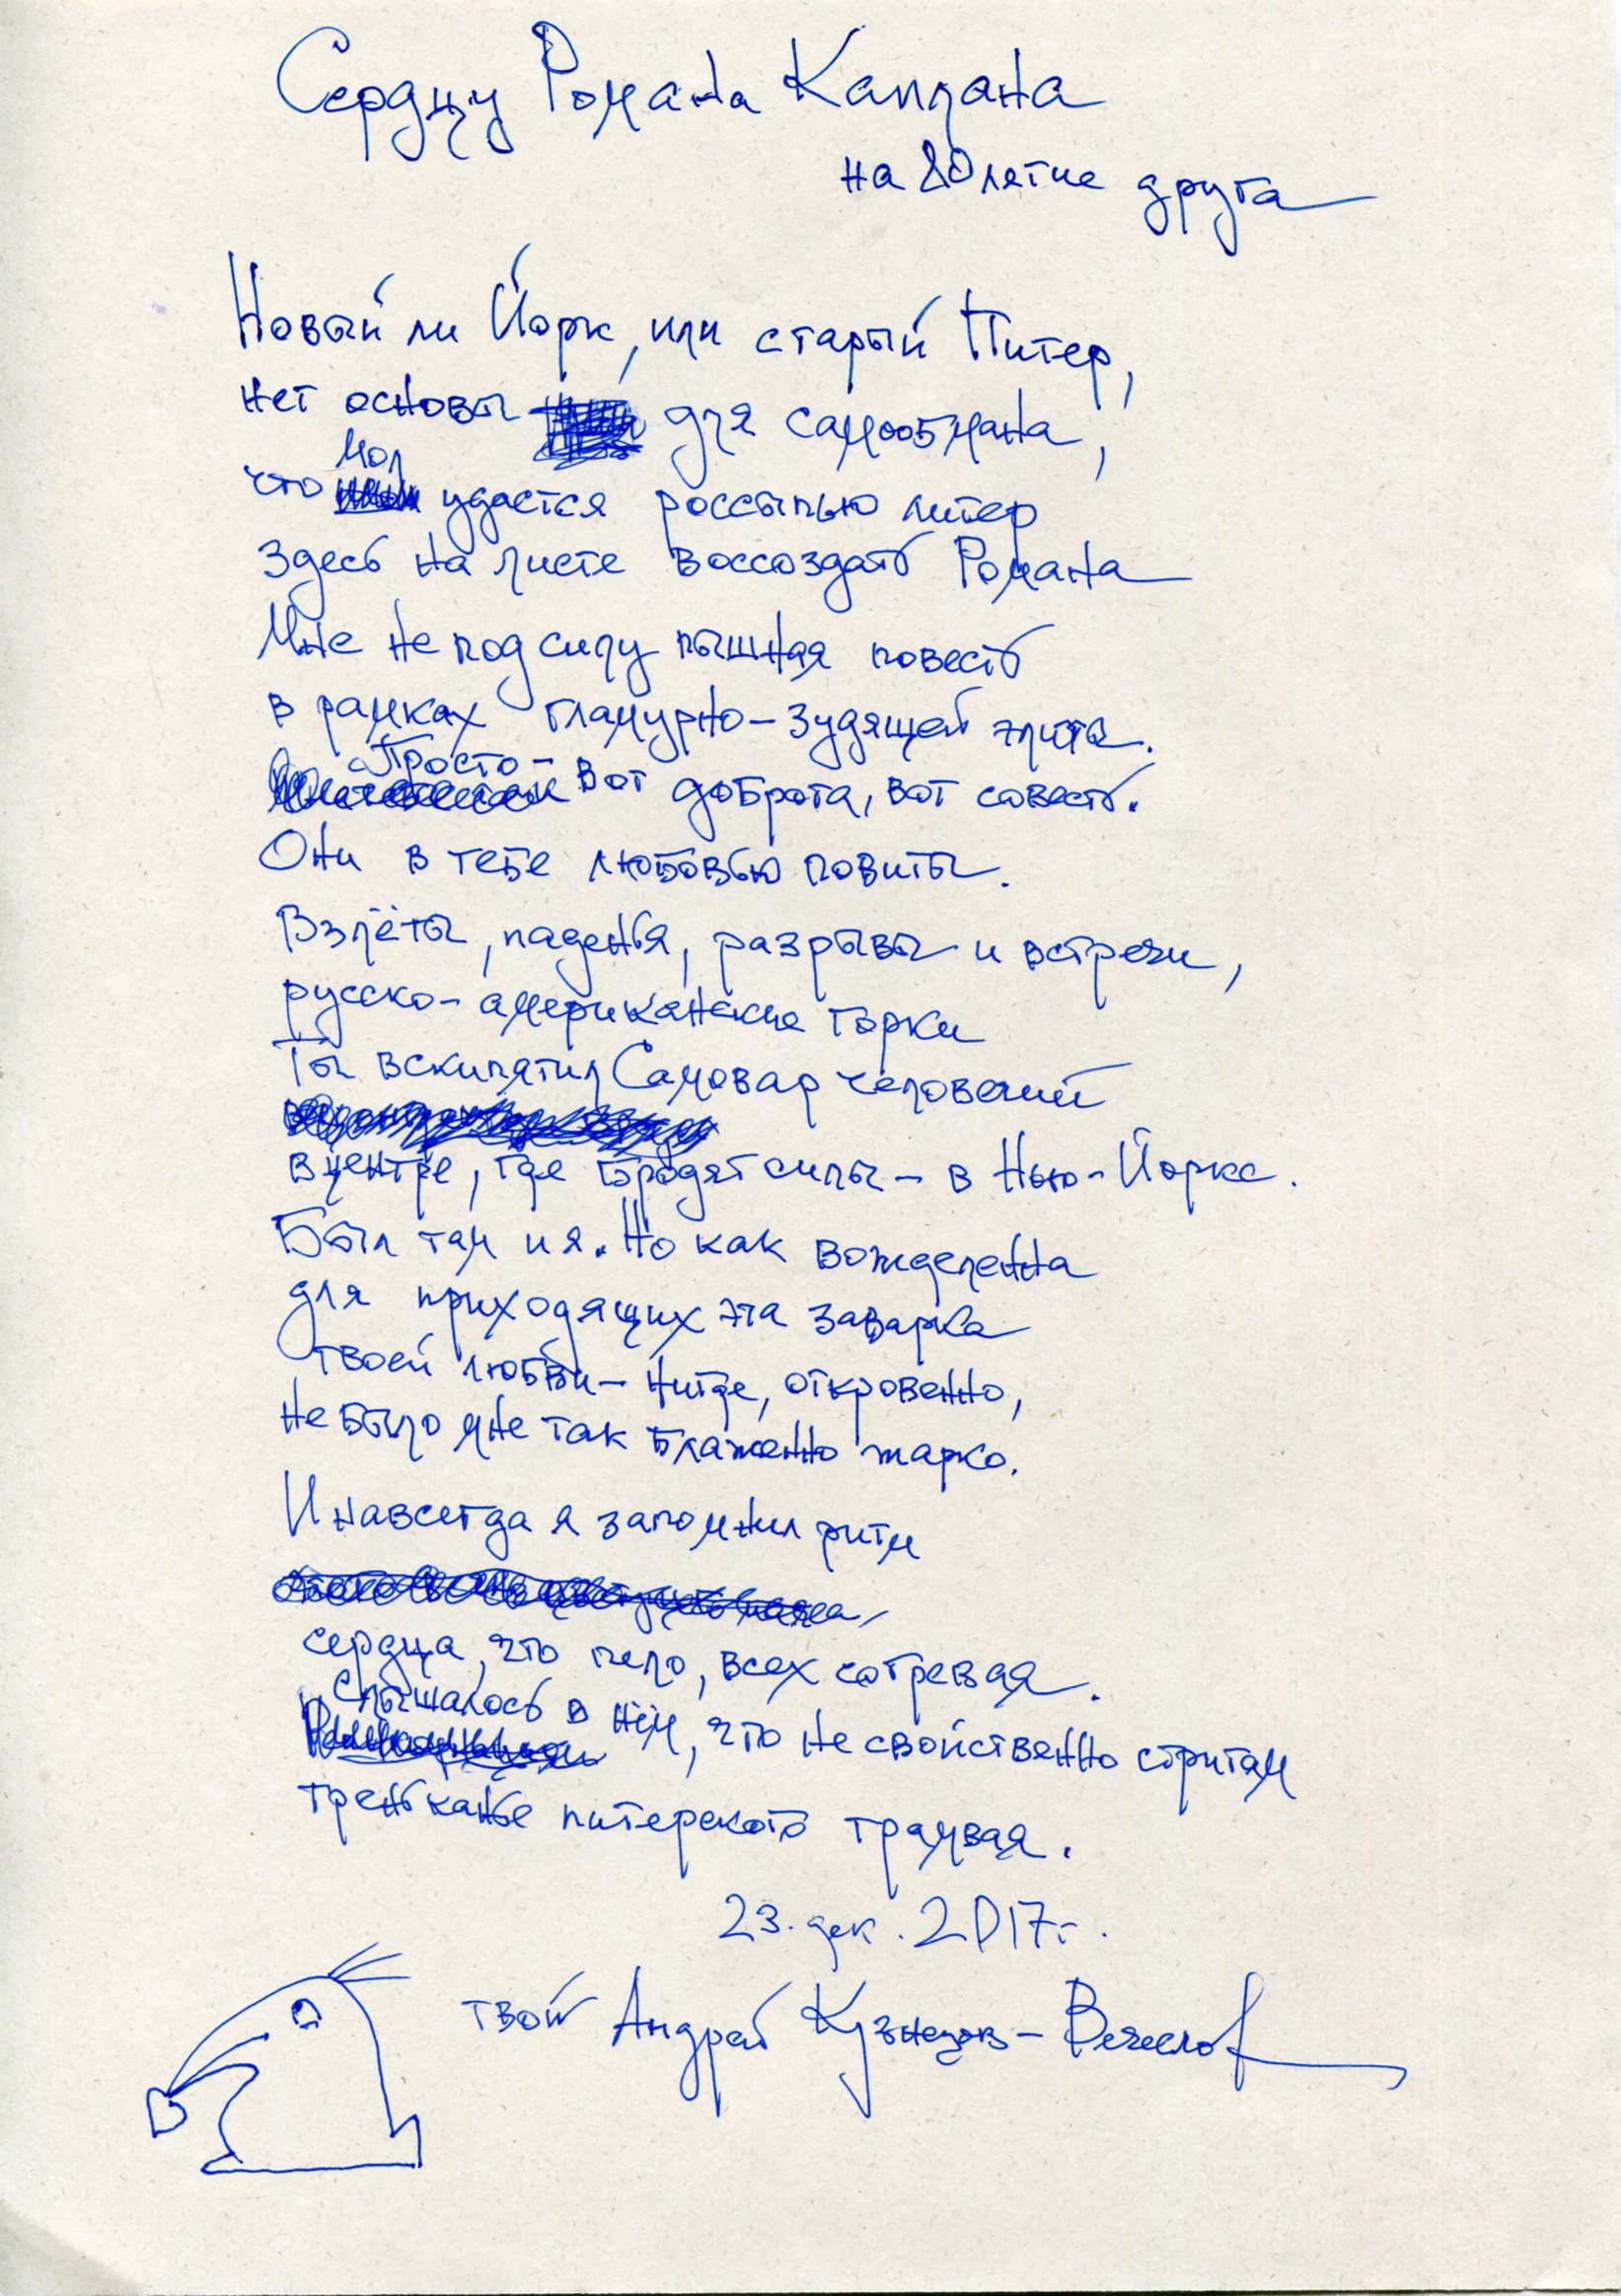 Сердцу Романа Каплана
на 80летие друга
Новый ли Йорк, или старый Питер,
нет основы для самообмана,
что мол удастся россыпью литер
Здесь на листе воссоздать Романа
Мне не под силу пышная повесть
в рамках гламурно-зудящей элиты.
Просто - вот доброта, вот совесть.
Они в тебе любовью повиты.
Взлёты, паденья, разрывы и встречи,
русско-американские горки
Ты вскипятил Самовар человечий
в центре, где бродят силы - в Нью-Йорке.
Был там и я. Но как вожделенна
для приходящих эта заварка
твоей любви - нигде, откровенно,
не было мне так блаженно жарко.
И навсегда я запомнил ритм
сердца, что пело, всех согревая.
Слышалось в нём, что не свойственно стритам
треньканье питерского трамвая.
23. дек. 2017г.
твой Андрей Кузнецов-Вечеслов